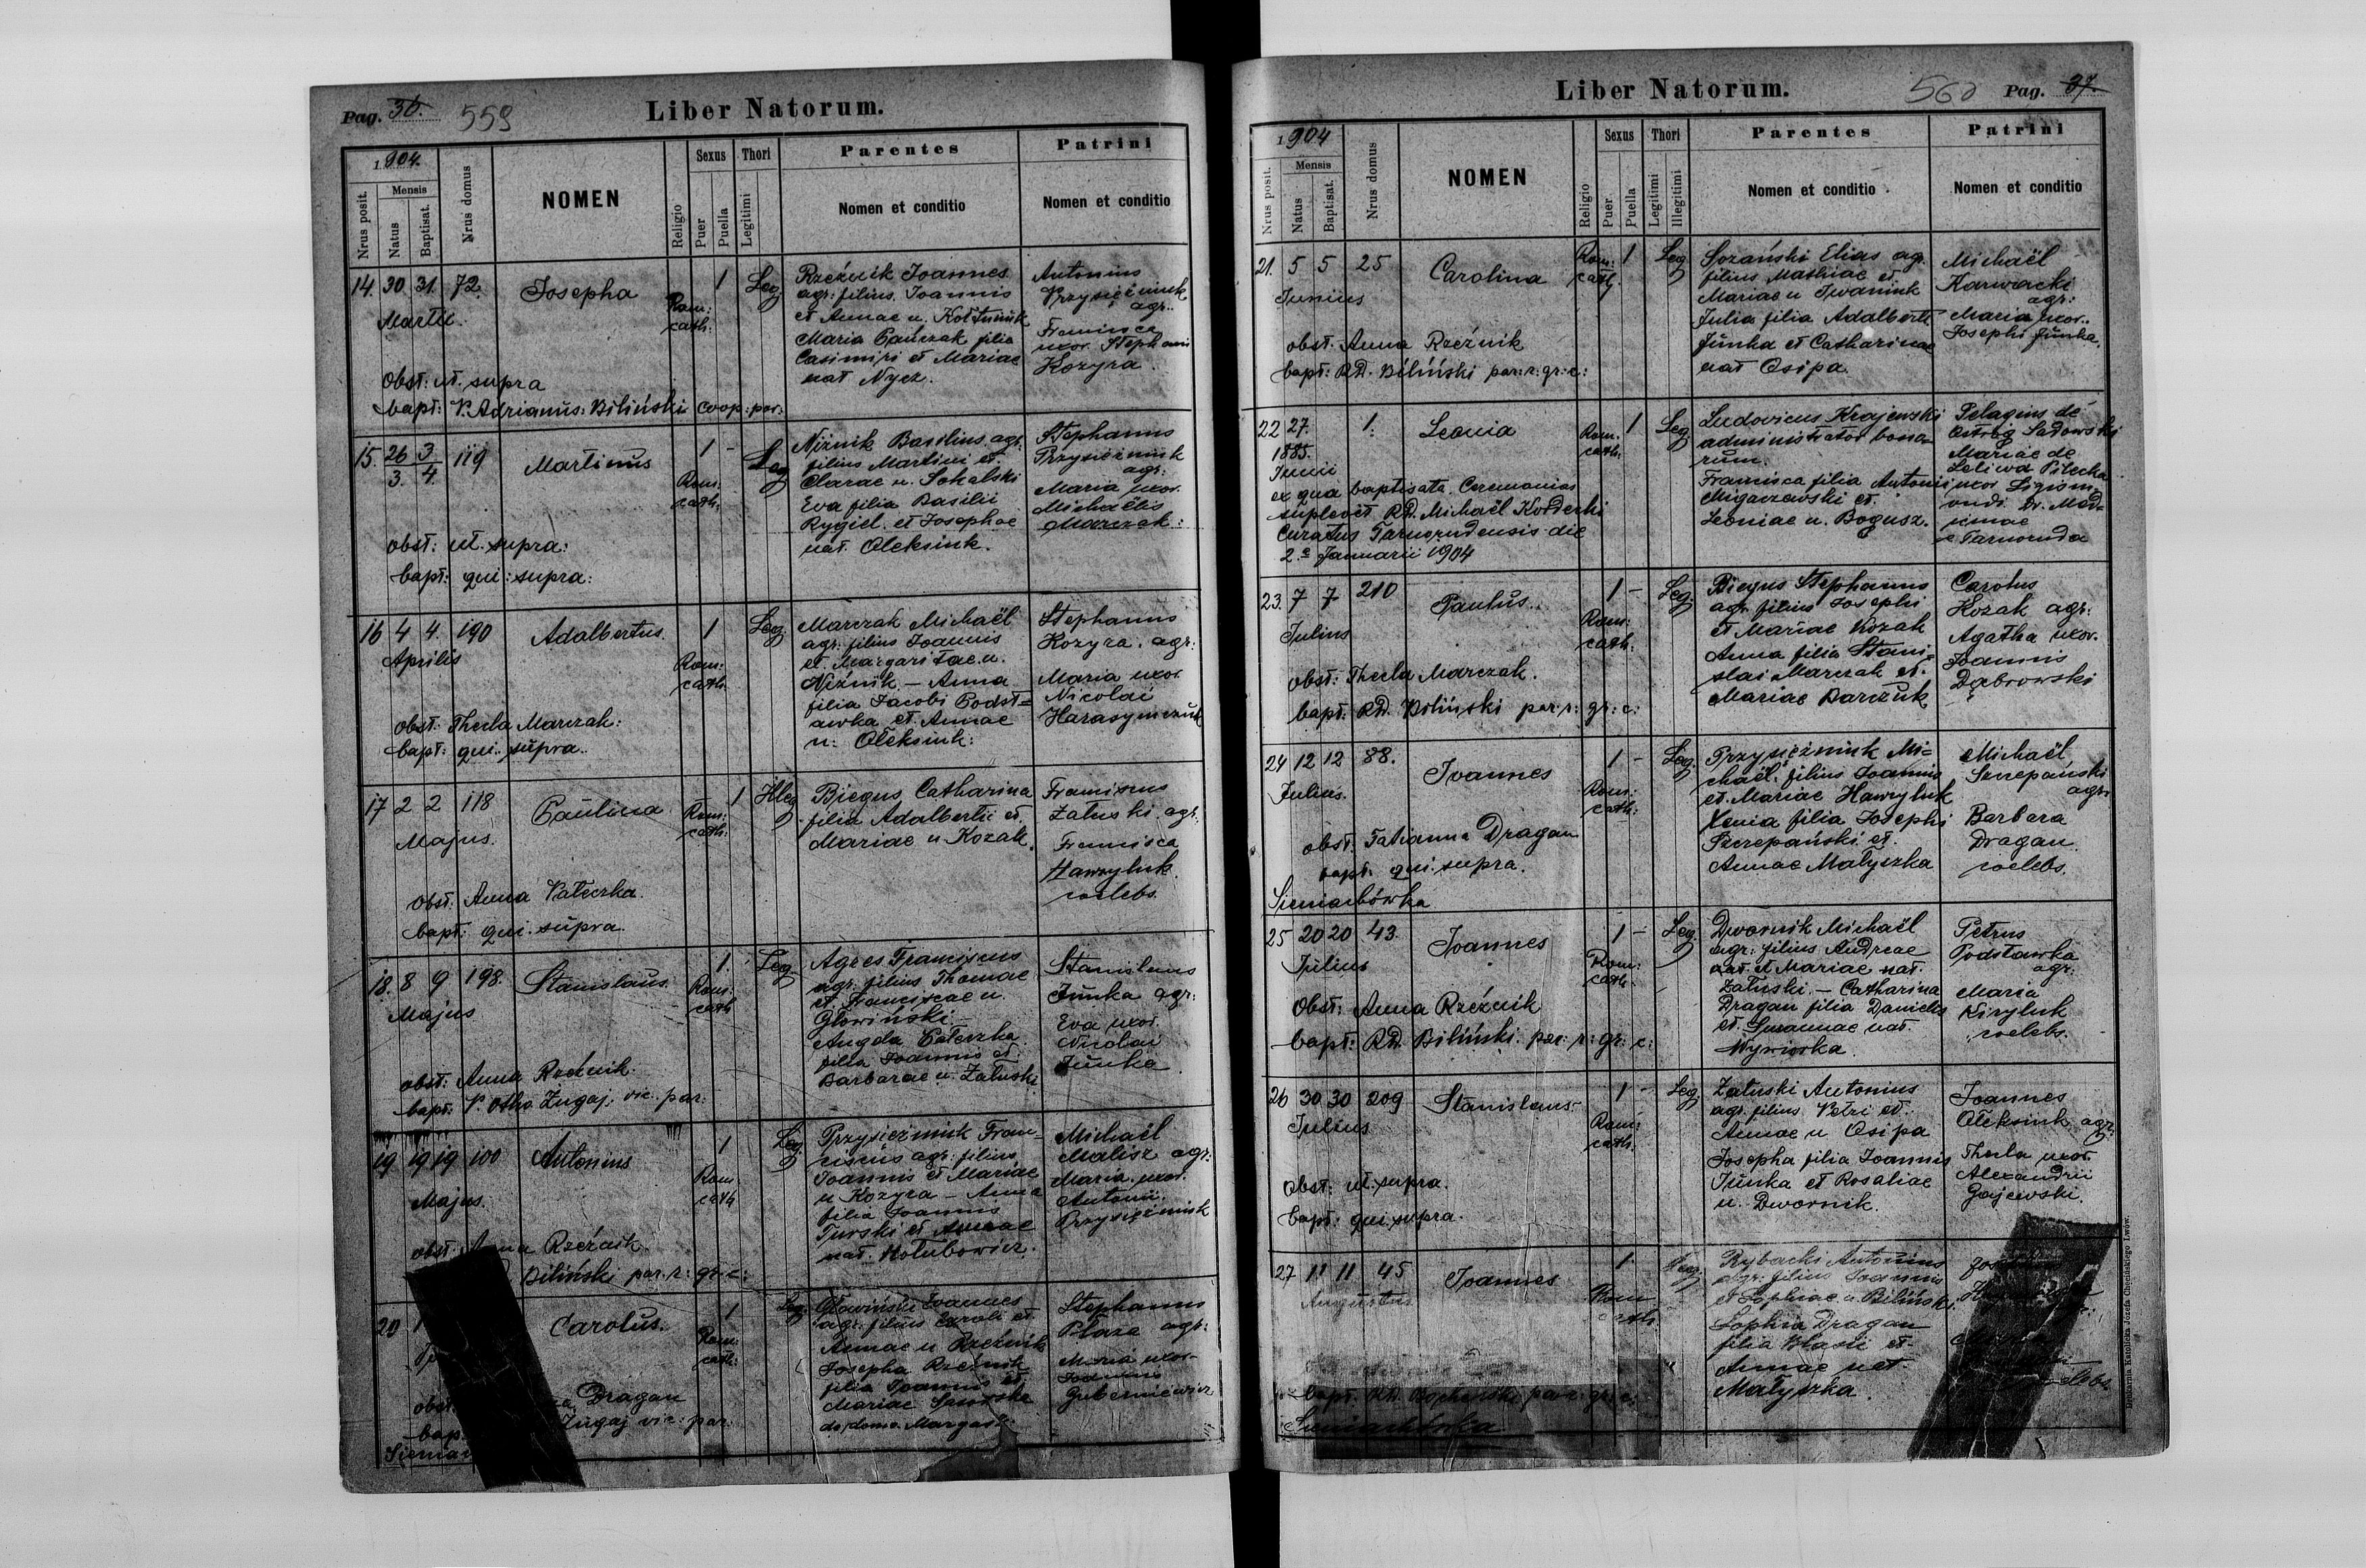 Pag. 36. 559 Liber Natorum.
1904.
Nrus posit.
Mensis
Natus
Baptisat.
Nrus domus
NOMEN
Religio
Sexus
Puer
Puella
Thori
Legitimi
Parentes
Nomen et conditio
Patrini
Nomen et conditio
14. 30 31. 72. Josepha 1 Leg
Martii.
Rom:
cath:
Rzeźnik Joannes
agr: filius Joannis
et Annae n. Kołtuniuk
Maria Pańczak filia
Casimiri et Mariae
nat Nycz.
Antonius
Przysiężniuk
agr:
Francisca
uxor Stephani
Kozyra.
Obst: ut supra
bapt: P. Adrianus Biliński coop: par:
15. 26 3 119 Martinus 1 - Leg
3. 4.
Rom:
cath:
Niźnik Basilius agr:
filius Martini et
Clarae n. Sokalski
Eva filia Basilii
Rygiel et Josephae
nat. Oleksiuk.
Stephanus
Przysiężniuk
agr:
Maria uxor
Michaëlis
Marczak:
obst: ut supra:
bapt: qui supra:
16 4 4. 190 Adalbertus 1 Leg.
Aprilis
Rom:
cath.
Marczak Michaël
agr: filius Joannis
et Margaritae n.
Niźnik – Anna
filia Jacobi Podst=
awka et Annae
n: Oleksiuk:
Stephanus
Kozyra. agr:
Maria uxor
Nicolai
Harasymczuk
obst: Thecla Marczak:
bapt: qui supra.
17 2 2 118 Paulina 1 Illeg
Majus.
Rom:
cath:
Biegus Catharina
filia Adalberti et
Mariae n Kozak.
Franciscus
Załuski agr.
Francisca
Hawryluk
coelebs.
obst: Anna Pałeczka.
bapt: qui supra.
18. 8 9 198. Stanislaus. 1. Leg
Majus
Rom:
cath
Agres Franciscus
agr. filius Thomae
et Franciscae n.
Głowiński –
Magda Pałeczka
filia Joannis et
Barbarae n. Załuski
Stanislaus
Juńka agr:
Eva uxor
Nicolai
Juńka
obst: Anna Rzeźnik.
bapt: P. Otho Zugaj. vic. par:
19 19 19 100 Antonius 1 Leg
Majus.
Rom
cath
Przysiężniuk Fran=
ciscus agr: filius
Joannis et Mariae
n Kozyra – Anna
filia Joannis
Turski et Annae
nat. Hołubowicz.
Michaël
Malisz agr:
Maria uxor
Antonii
Przysiężniuk
obst: Anna Rzeźnik.
Biliński par. r: gr. c:
20 Carolus. 1 Leg.
Rom:
cath:
Głowiński Joannes
agr: filius Caroli et
Annae n Rzeźnik
Josepha Rzeźnik
filia Joannis et
Mariae
de domo
Stephanus
Płaza agr:
Maria uxor
Joannis
Guberniewicz
Dragan
Zugaj vic: par:
Liber Natorum. 560 Pag. 37.
1904
Nrus posit.
Mensis
Natus
Baptisat.
Nrus domus
NOMEN
Religio
Sexus
Puer
Puella
Thori
Legitimi
Illegitimi
Parentes
Nomen et conditio
Patrini
Nomen et conditio
21. 5 5 25 Carolina 1 Leg
Junius
Rom:
cath
Sozański Elias agr.
filius Mathiae et
Mariae n Iwaniuk
Julia filia Adalberti
Juńka et Catharinae
nat Osipa.
Michaël
Karwacki
agr:
Maria uxor.
Josephi Juńka.
obst: Anna Rzeźnik
bapt: RD. Biliński par: r: gr: c:
22 27. 1. Leonia 1 Leg
1885.
Junii
Rom.
cath.
ex aqua baptisata. Ceremonias
suplevit RD. Michaël Korderki
Curatus Tarnorudensis die
2 Januarii 1904
Ludovicus Krajewski
administrator bono=
rum.
Francisca filia Antonii
Migaczewski et
Leoniae n. Bogusz.
Pelagius de
Ostróg Sadowski
Mariae de
Leliwa Pilecka
uxor Sigism=
undi Dr. Med=
icinae
e Tarnoruda
23. 7 7 210 Paulus. 1 - Leg
Julius
Rom:
cath:
Biegus Stephanus
agr. filius Josephi
et Mariae Kozak
Anna filia Stani=
slai Marczak et.
Mariae Barczuk
Carolus
Kozak agr:
Agatha uxor.
Joannis
Dąbrowski
obst: Thecla Marczak.
bapt: RD. Biliński par: r: gr: c:
24 12 12 88. Joannes 1 - Leg.
Julius.
Rom:
cath:
Przysiężniuk Mi=
chaël. filius Joannis
et. Mariae Hawryluk
Xenia filia Josephi
Szczepański et.
Annae Małyszka
Michaël
Szczepański
agr.
Barbara
Dragan
coelebs.
obst. Tatianna Dragan
bapt: qui supra.
Sieniachówka
25 20 20 43. Joannes 1 - Leg.
Julius
Rom:
cath.
Dwornik Michaël
agr: filius Andreae
nat. et Mariae nat.
Załuski. – Catharina
Dragan filia Danielis
et. Susannae nat.
Petrus
Podstawka
agr:
Maria
Kiryluk
coelebs.
Obst: Anna Rzeźnik
bapt: RD. Biliński. par: r: gr: c:
26 30 30 209 Stanislaus 1 - Leg.
Julius
Rom:
cath.
Załuski Antonius
agr. filius Petri et.
Annae n Osipa
Josepha filia Joannis
Juńka et Rosaliae
n. Dwornik.
Joannes
Oleksiuk agr:
Thecla uxor
Alexandrii
Gajewski.
Obst: ut supra.
bapt: qui supra.
27 11 11 45 Joannes 1. Leg:
Augustus
Rom
cath.
Rybacki Antonius
agr: filius Joannis
et Sophiae n. Biliński.
Sophia Dragan
filia Blasii et
Annae nat.
Małyszka.
bapt. RD. par: r: gr: c:
Sieniachówka
Drukarnia Katolicka Józefa Chęcińskiego Lwów.